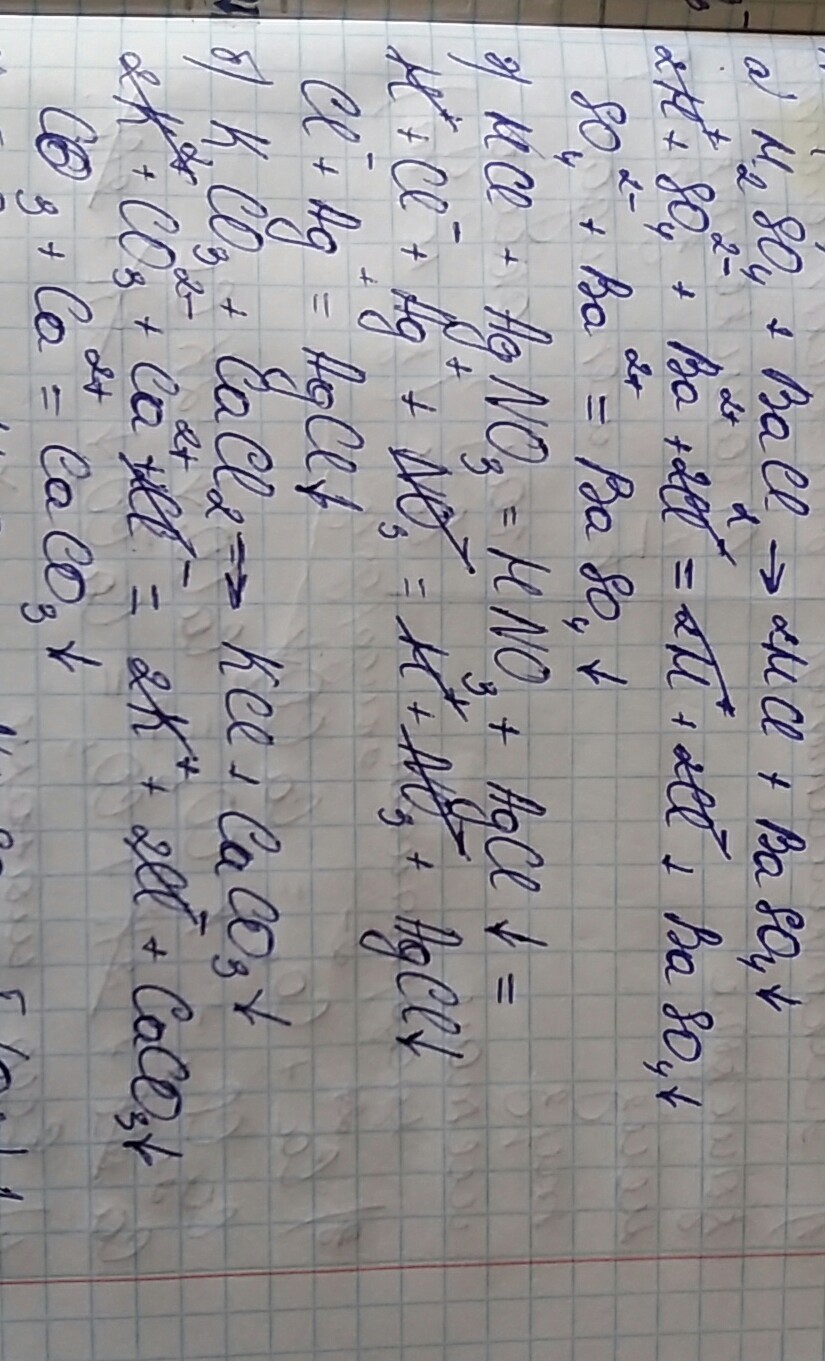 а) H₂SO₄ + BaCl₂ → 2HCl + BaSO₄↓
2H⁺ + SO₄²⁻ + Ba²⁺ + 2Cl⁻ = 2H⁺ + 2Cl⁻ + BaSO₄↓
SO₄²⁻ + Ba²⁺ = BaSO₄↓
г) HCl + AgNO₃ = HNO₃ + AgCl↓ =
H⁺ + Cl⁻ + Ag⁺ + NO₃⁻ = H⁺ + NO₃⁻ + AgCl↓
Cl⁻ + Ag⁺ = AgCl↓
б) K₂CO₃ + CaCl₂ → KCl + CaCO₃↓
2K⁺ + CO₃²⁻ + Ca²⁺ + 2Cl⁻ = 2K⁺ + 2Cl⁻ + CaCO₃↓
CO₃ + Ca²⁺ = CaCO₃↓